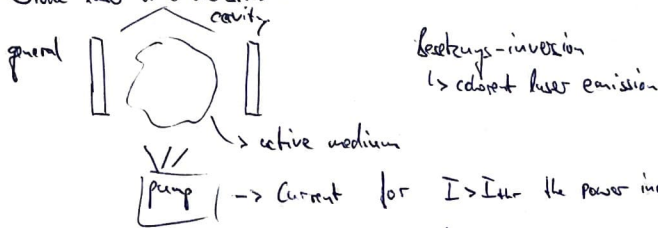 cavity
general
Besetzungs-inversion
↳ coherent laser emission
-> active medium
pump -> Current for I > I_thr the power in